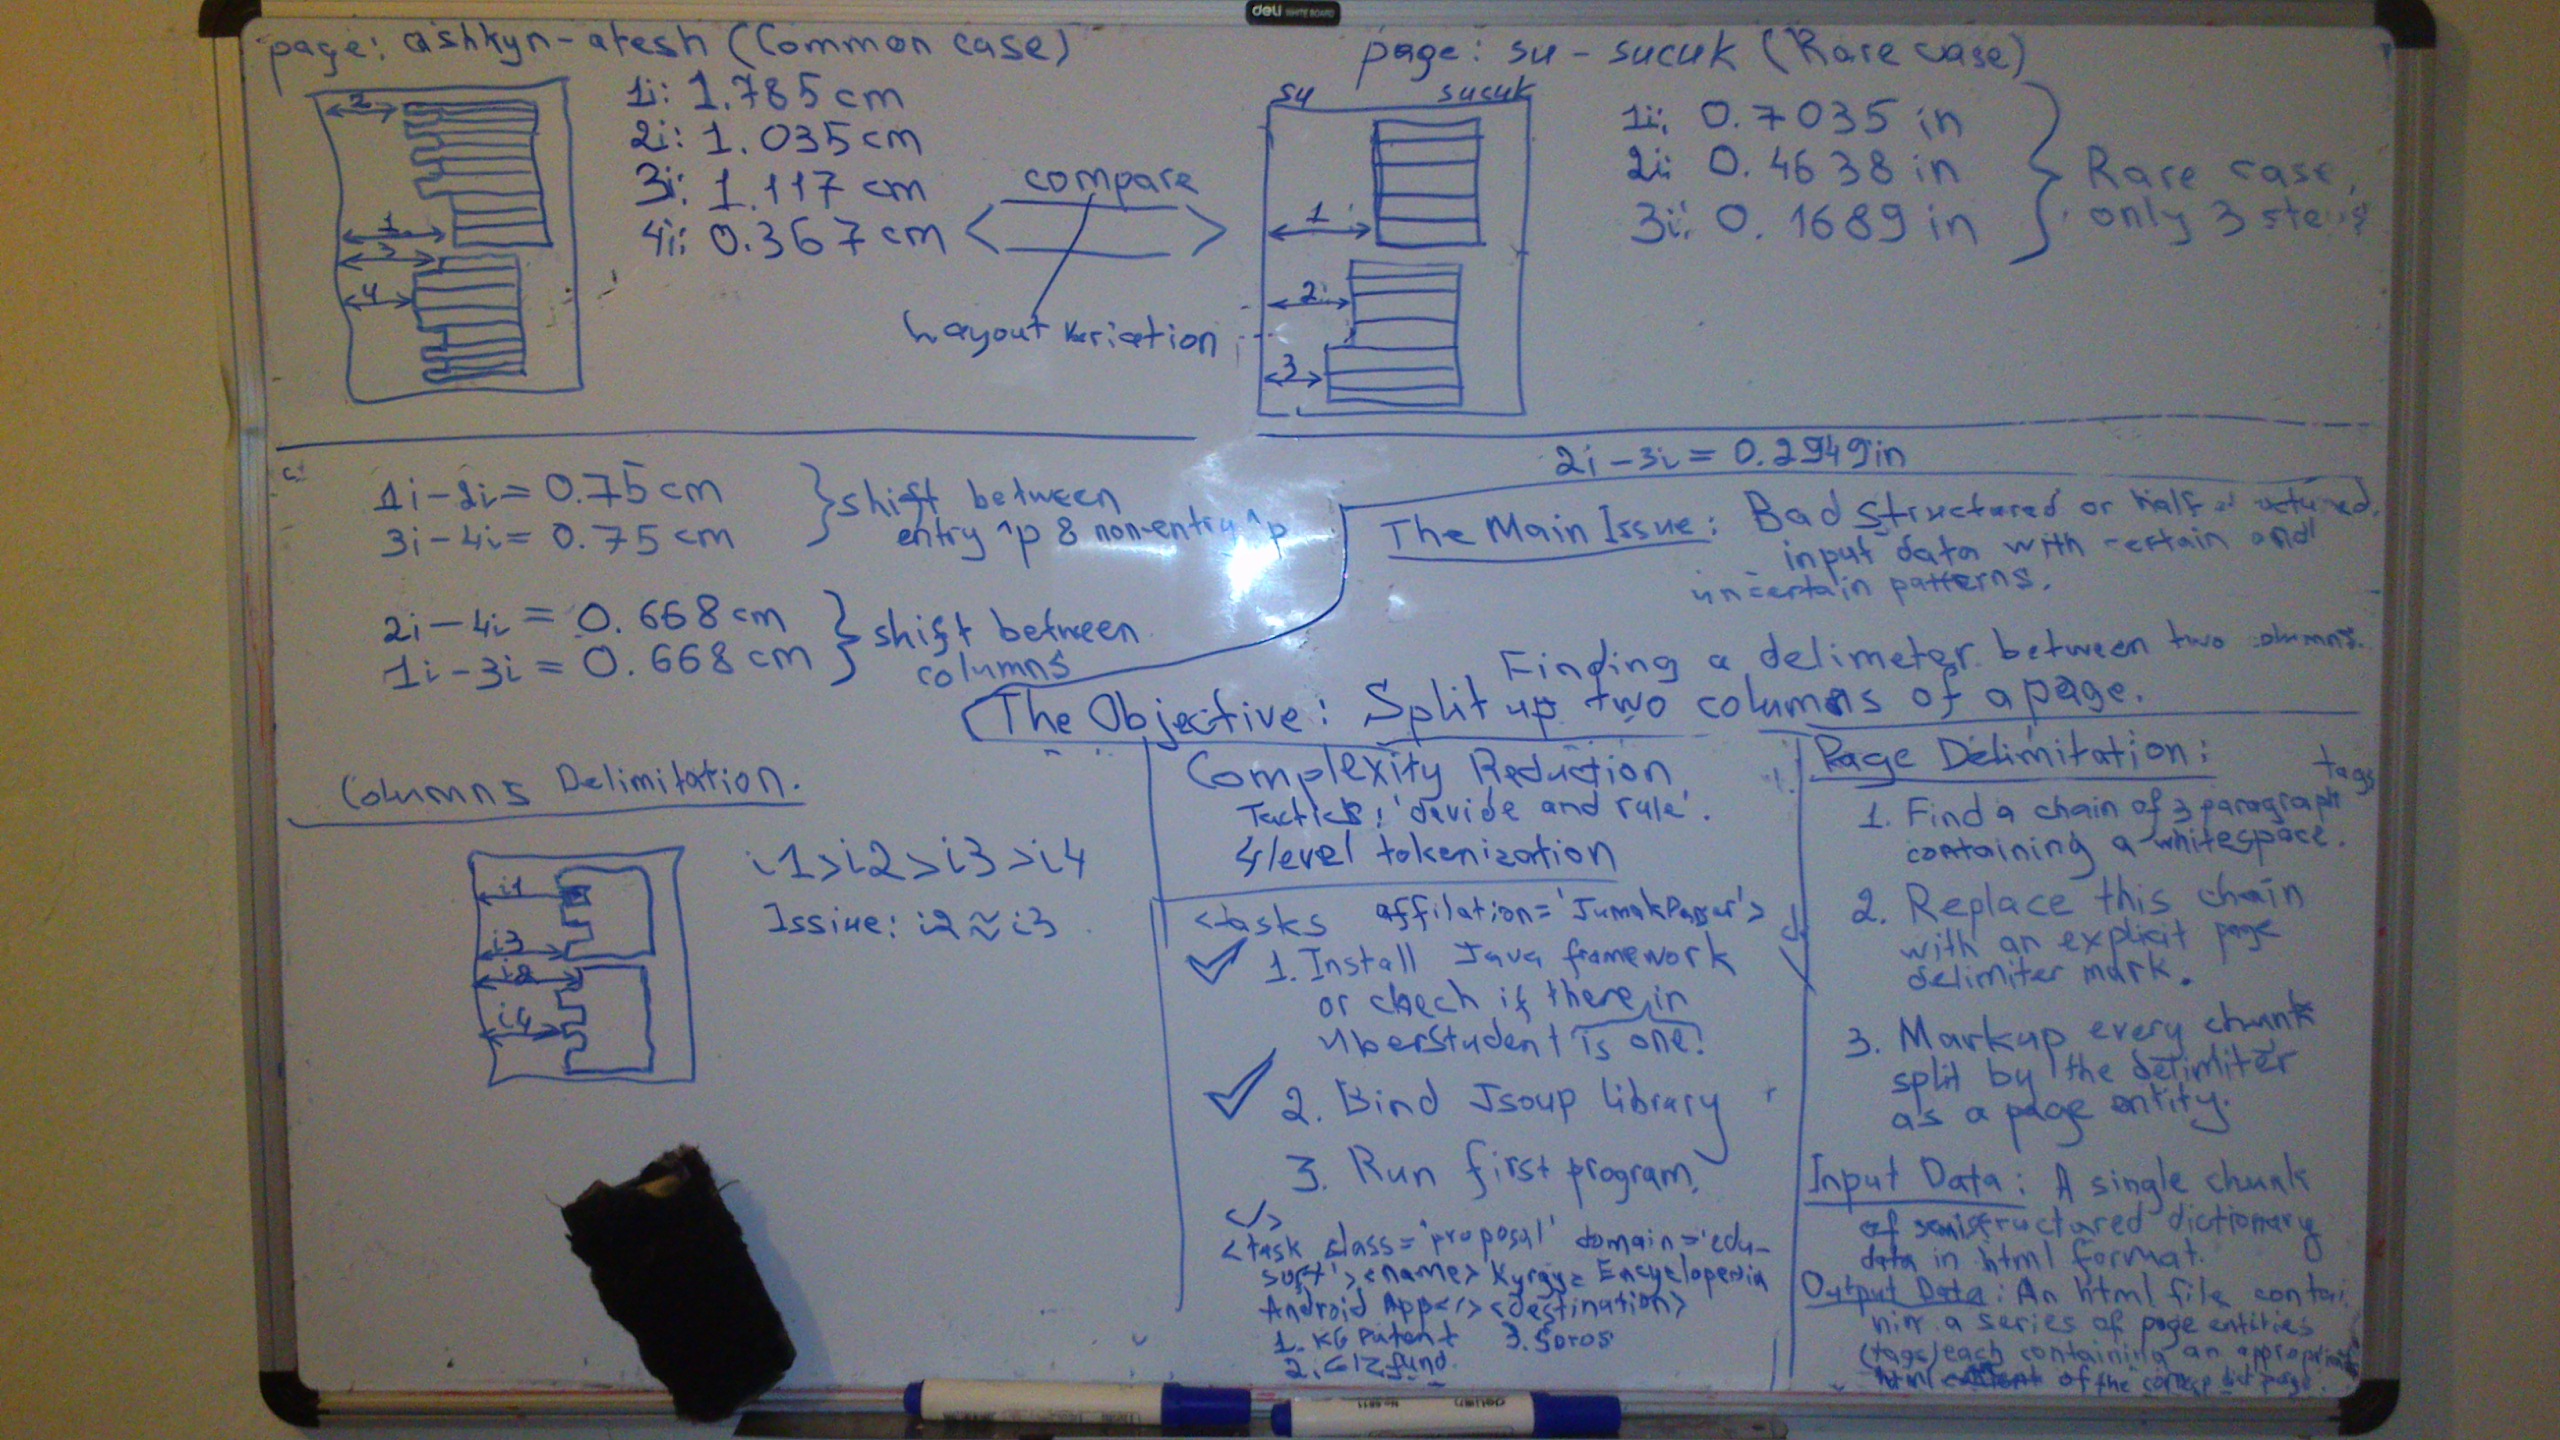 deli WHITE BOARD
page: ashkyn-atesh (Common case)
2
1.
3
4
1i: 1.785 cm
2i: 1.035 cm
3i: 1.117 cm
4i: 0.367 cm
compare
Layout Variation
page: su - sucuk (Rare case)
su sucuk
1
2
3
1i: 0.7035 in
2i: 0.4638 in
3i: 0.1689 in
Rare case,
only 3 steps
1i-2i= 0.75 cm
3i-4i= 0.75 cm
shift between
entry ^p & non-entry ^p
2i-4i = 0.668 cm
1i-3i = 0.668 cm
shift between
columns
2i-3i = 0.2949in
The Main Issue: Bad structured or half structured
input data with certain and
uncertain patterns.
Finding a delimeter between two columns.
The Objective: Split up two columns of a page.
Columns Delimitation.
i1
i3
i2
i4
i1>i2>i3>i4
Issiue: i2≈i3.
Complexity Reduction
Tactics: 'devide and rule'.
4 level tokenization
<tasks affilation='JumakParser'>
1. Install Java framework
or check if there in
uberstudent is one!
2. Bind Jsoup library
3. Run first program.
</>
<task class='proposal' domain='edu-
soft'><name> Kyrgyz Encyclopedia
Android App</><destination>
1. KG Patent 3. Soros
2. GIZ fund.
Page Delimitation:
1. Find a chain of 3 paragraph tags
containing a whitespace.
2. Replace this chain
with an explicit page
delimiter mark.
3. Markup every chunk
split by the delimiter
as a page entity.
Input Data: A single chunk
of semistructared dictionary
data in html format.
Output Data: An html file contai
nin a series of page entities
(tags) each containing an appropriate
html content of the corresp dict page.